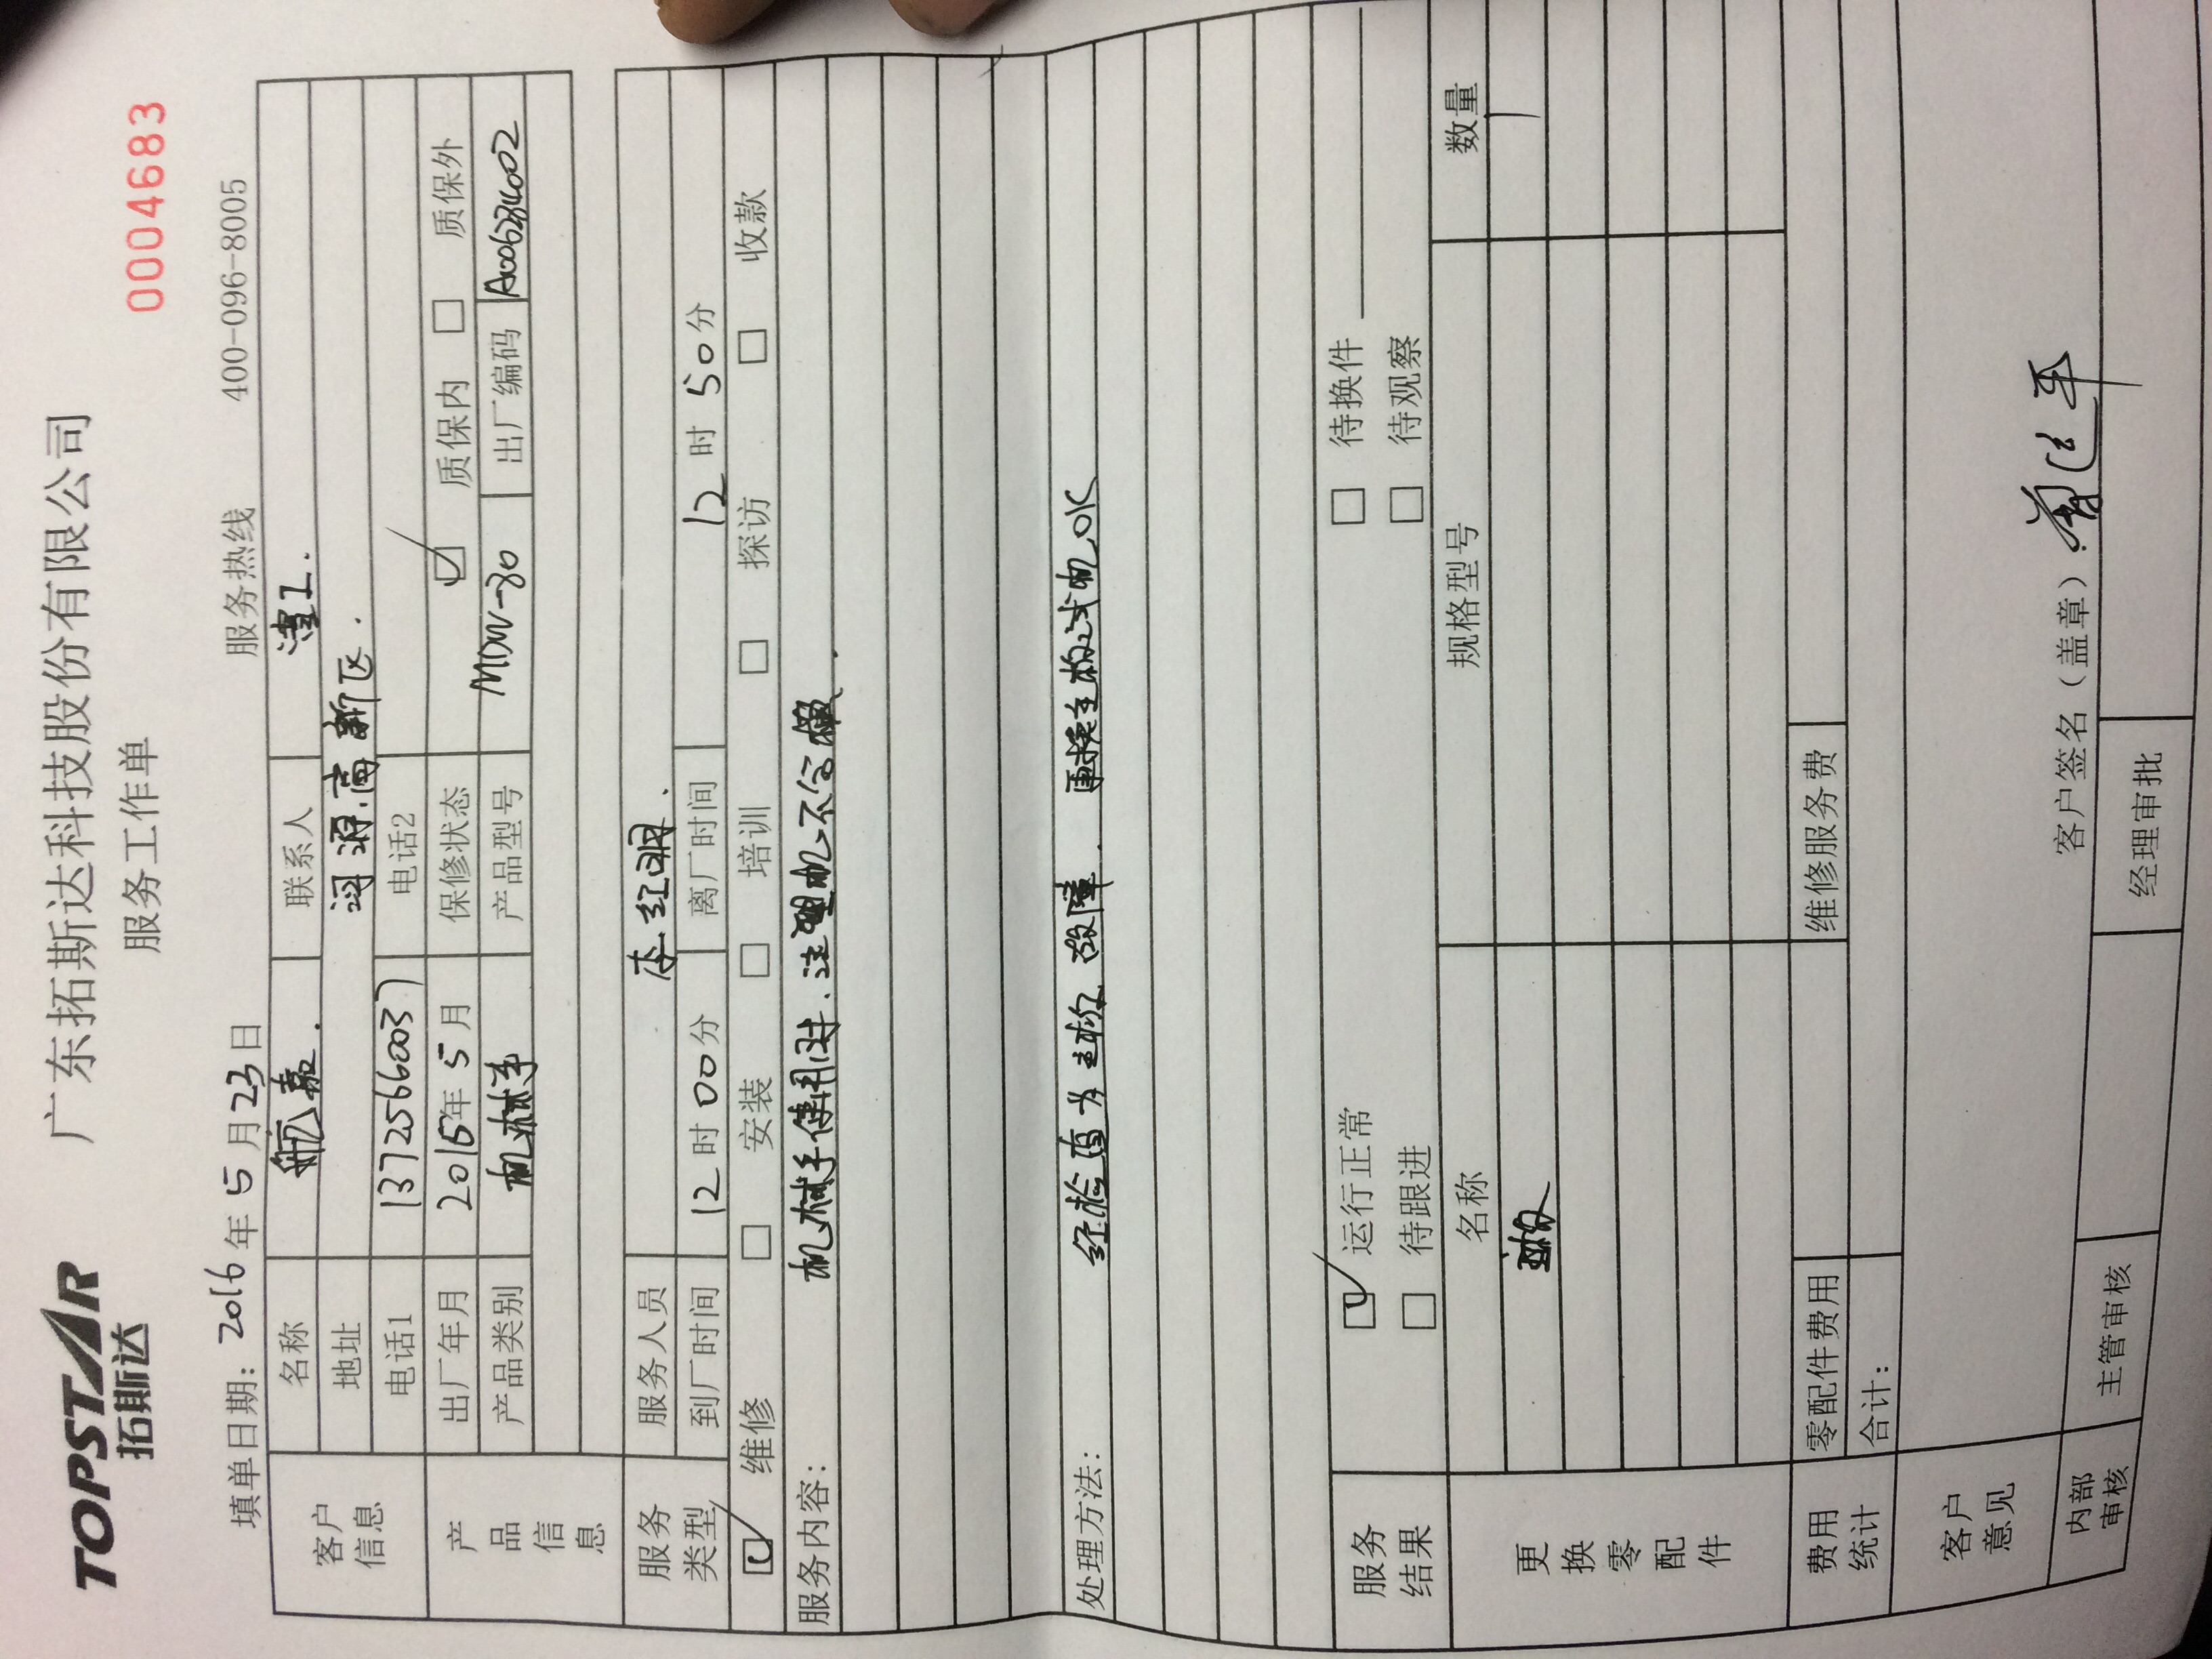 TOPSTAR 广东拓斯达科技股份有限公司
拓斯达 服务工作单 0004683
填单日期：2016年5月23日 服务热线 400-096-8005
客户信息
名称 航嘉. 联系人
地址 河源.高新区.
电话1 13725666003 电话2
产品信息
出厂年月 2015年5月 保修状态 ☑ 质保内 □ 质保外
产品类别 机械手 产品型号 出厂编码
服务类型
服务人员 李红明.
到厂时间 12时00分 离厂时间 12时50分
☑ 维修 □ 安装 □ 培训 □ 探访 □ 收款
服务内容： 机械手使用时.注塑机不合模.
处理方法： 经检查为主板故障.更换主板试机OK
服务结果
☑ 运行正常 □ 待换件
□ 待跟进 □ 待观察
更换零配件
名称 规格型号 数量
主板 1
费用统计
零配件费用 维修服务费
合计：
客户意见
客户签名（盖章）：
内部审核 主管审核 经理审批